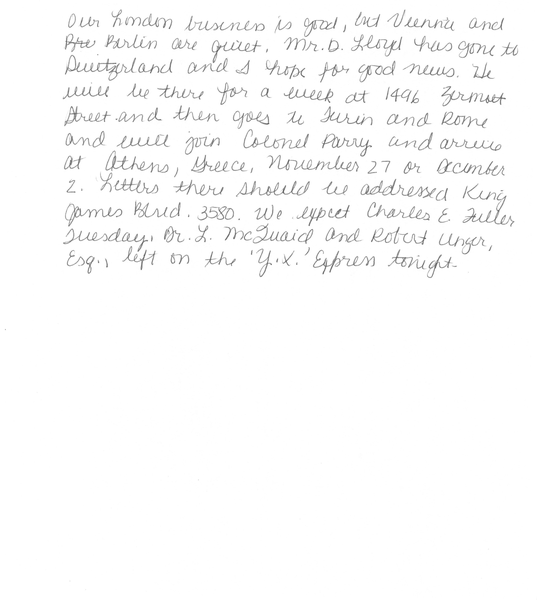 Our London business is good, but Vienna and
Berlin are quiet. Mr. D. Lloyd has gone to
Switzerland and I hope for good news. He
will be there for a week at 1496 Zermott
Street and then goes to Turin and Rome
and will join Colonel Parry and arrive
at Athens, Greece, November 27 or December
2. Letters there should be addressed King
James Blvd. 3580. We expect Charles E. Fuller
Tuesday. Dr. L. McQuaid and Robert Unger,
Esq., left on the 'Y.X.' Express tonight.